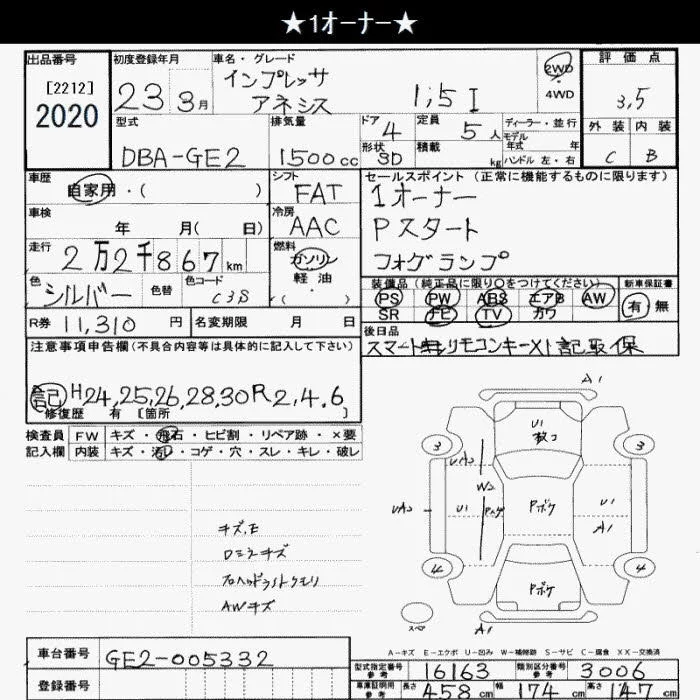 ★1オーナー★
出品番号 初度登録年月 車名・グレード 評価点
[2212]
2020
23 3月 インプレッサ アネシス 1,5 I 2WD 4WD 3,5
型式 排気量 ドア 定員 ディーラー・並行 外装 内装
DBA-GE2 1500cc 4 5人 モデル年式 年
形状 3D 積載 kg ハンドル 左・右 C B
車歴 シフト セールスポイント (正常に機能するものに限ります)
自家用・( ) FAT 1オーナー
車検 冷房 Pスタート
年 月( 日) AAC フォグランプ
走行 燃料
2万2千867km ガソリン
色 色替 色コード 軽油
シルバー C3S ・( )
装備品 (純正品に限り○をつけてください) 新車保証書
PS PW ABS エアB AW 有 無
SR ナビ TV カワ
R券 11,310円 名変期限 月 日 後日品
スマートキーリモコンキー×1 記取保
注意事項申告欄 (不具合内容等は具体的に記入して下さい)
記 H24,25,26,28,30 R2,4,6
修復歴 有 [箇所 ]
検査員 FW キズ・飛石・ヒビ割・リペア跡・×要
記入欄 内装 キズ・汚レ・コゲ・穴・スレ・キレ・破レ
キズ,E
Dミラーキズ
フロヘッドライトクモリ
AWキズ
A1
U1
3 3
UA2
W2
UA2 U1 Pボケ U1
A1
4 4
Pボケ
スペア
A1
A-キズ E-エクボ U-凹み W-補修跡 S-サビ C-腐食 XX-交換済
車台番号 GE2-005332
型式指定番号 参考 16163 類別区分番号 参考 3006
登録番号
車庫証明用 参考 長さ 458cm 幅 174cm 高さ 147cm